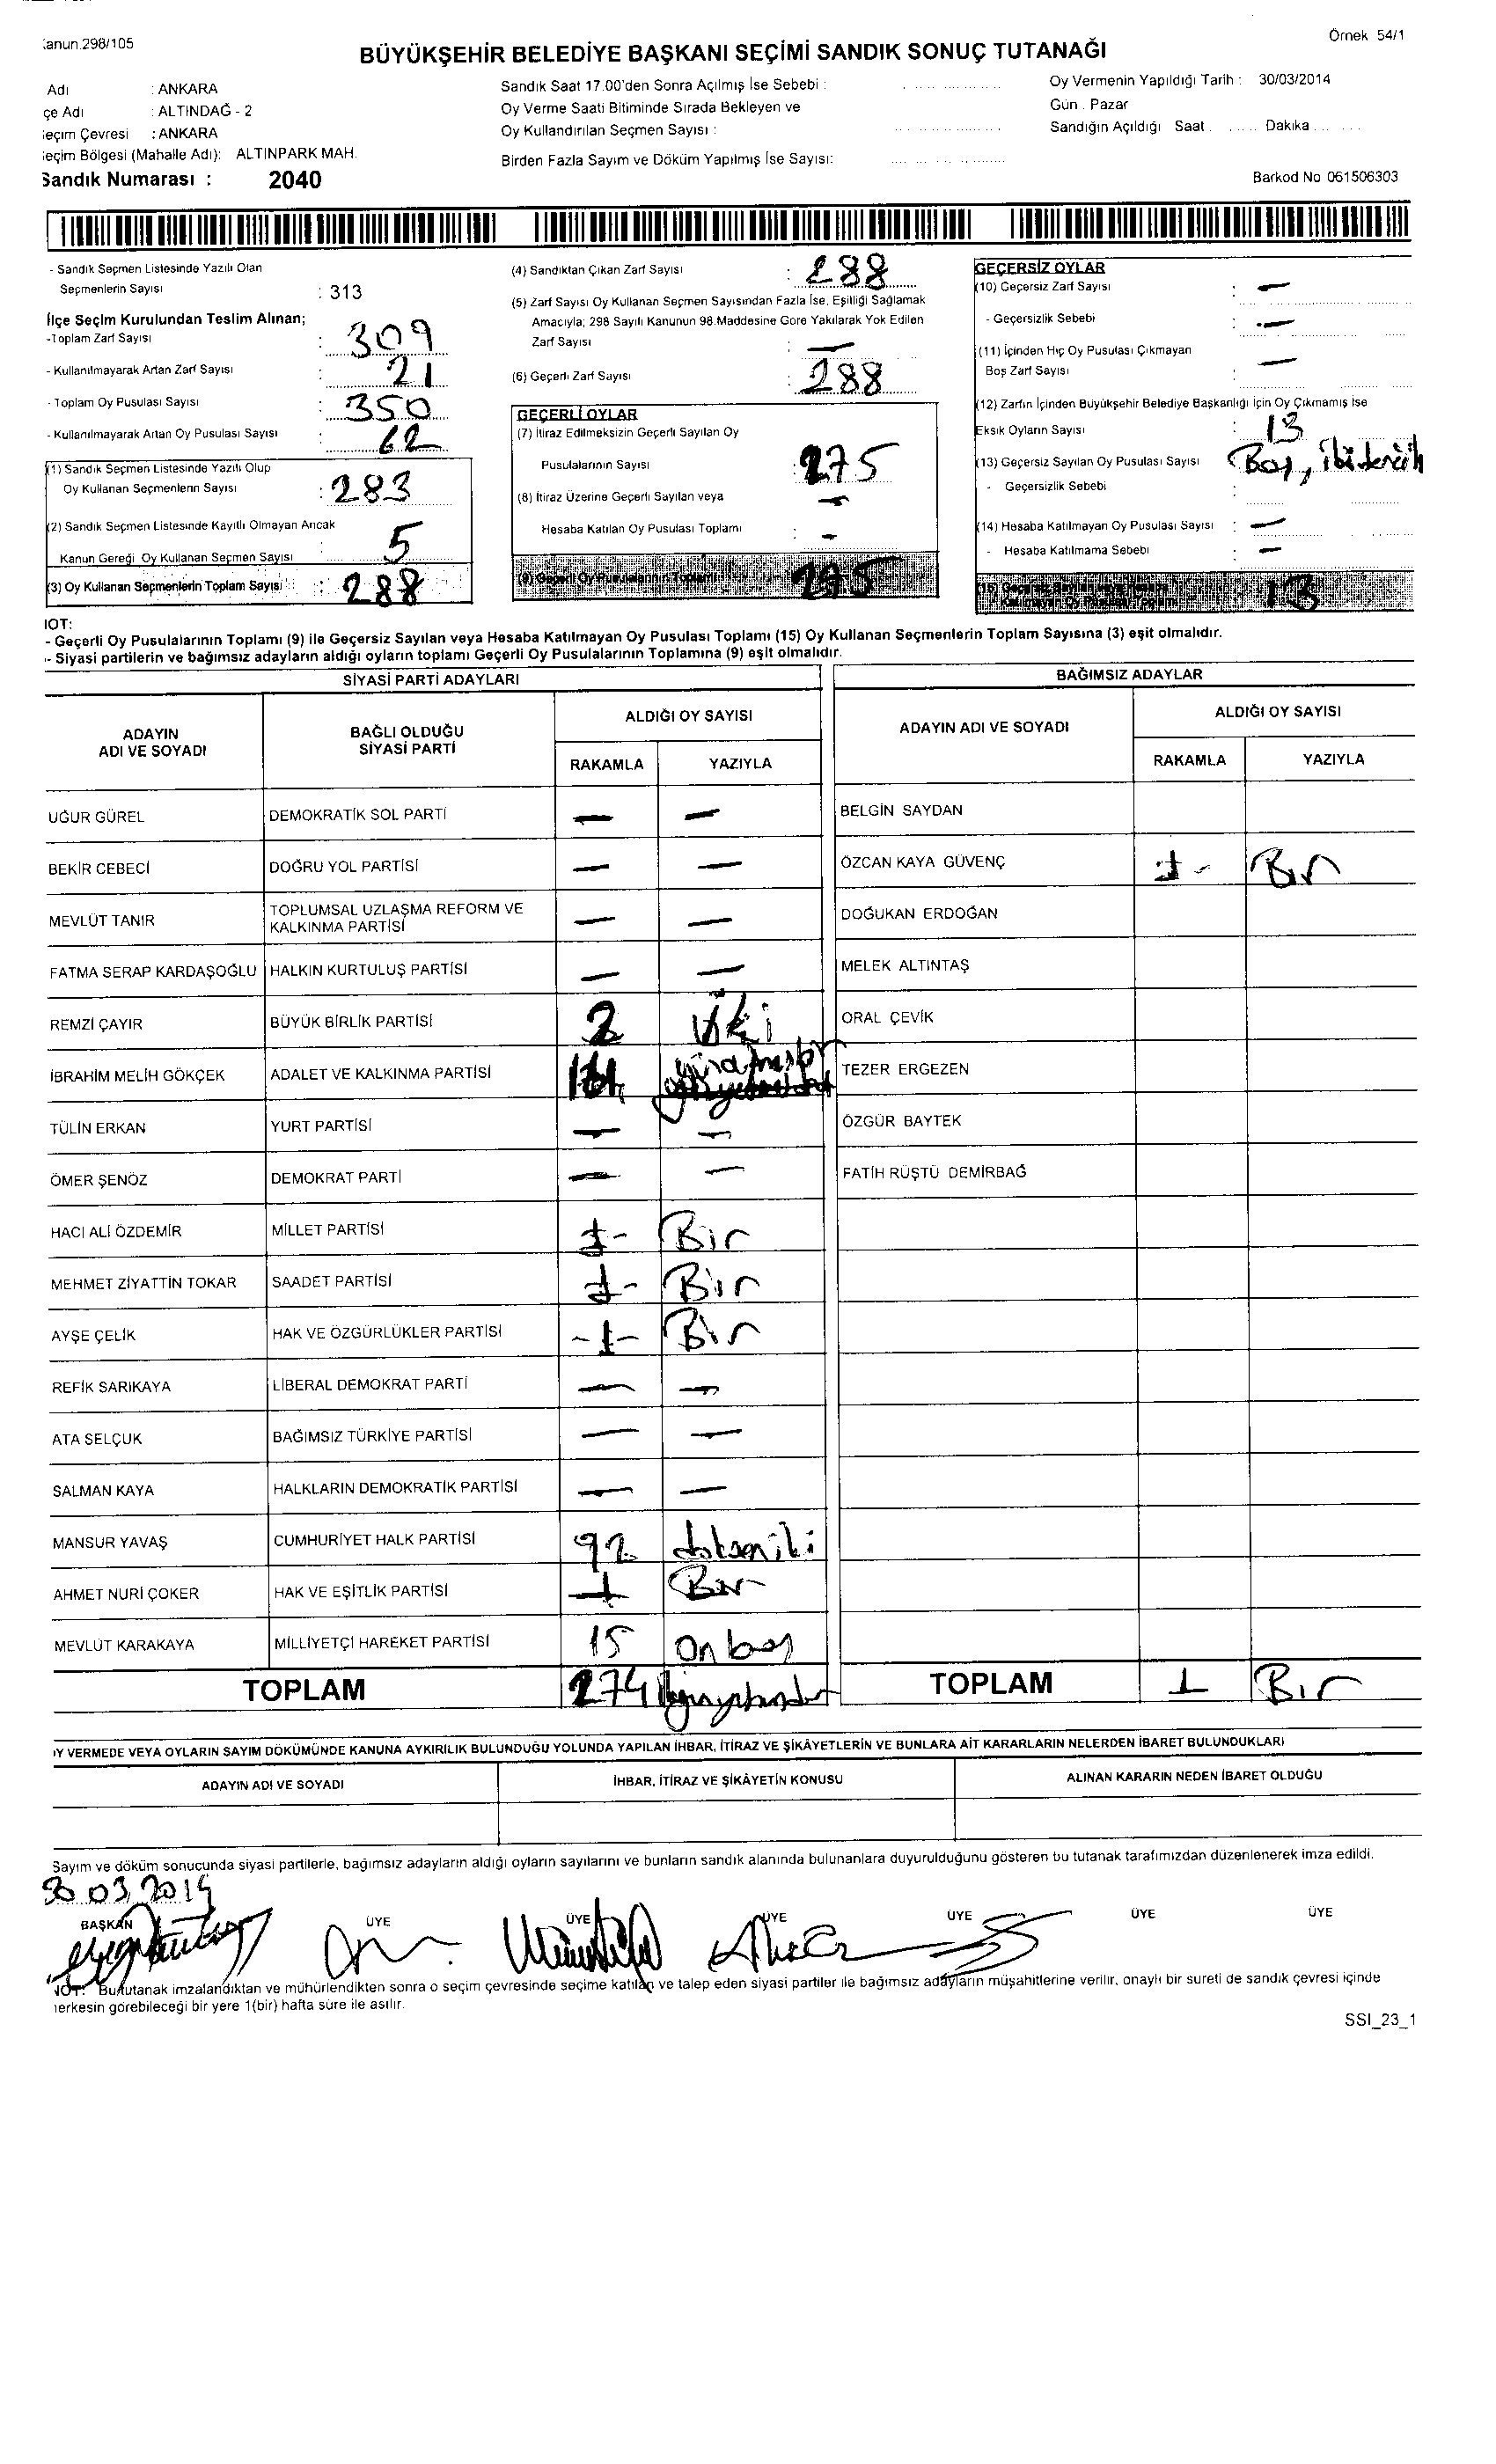 Örnek 54/1
BÜYÜKŞEHİR BELEDİYE BAŞKANI SEÇİMİ SANDIK SONUÇ TUTANAĞI
anun.298/105
Adı : ANKARA
çe Adı : ALTINDAĞ - 2
eçim Çevresi : ANKARA
eçim Bölgesi (Mahalle Adı): ALTINPARK MAH.
Sandık Numarası : 2040
Sandık Saat 17.00'den Sonra Açılmış İse Sebebi :
Oy Verme Saati Bitiminde Sırada Bekleyen ve
Oy Kullandırılan Seçmen Sayısı :
Birden Fazla Sayım ve Döküm Yapılmış İse Sayısı:
Oy Vermenin Yapıldığı Tarih : 30/03/2014
Gün . Pazar
Sandığın Açıldığı Saat . Dakika
Barkod No 061506303
- Sandık Seçmen Listesinde Yazılı Olan
Seçmenlerin Sayısı : 313
İlçe Seçim Kurulundan Teslim Alınan;
-Toplam Zarf Sayısı : 309
- Kullanılmayarak Artan Zarf Sayısı : 21
- Toplam Oy Pusulası Sayısı : 350
- Kullanılmayarak Artan Oy Pusulası Sayısı : 62
(1) Sandık Seçmen Listesinde Yazılı Olup
Oy Kullanan Seçmenlerin Sayısı : 283
(2) Sandık Seçmen Listesinde Kayıtlı Olmayan Ancak
Kanun Gereği Oy Kullanan Seçmen Sayısı : 5
(3) Oy Kullanan Seçmenlerin Toplam Sayısı : 288
(4) Sandıktan Çıkan Zarf Sayısı : 288
(5) Zarf Sayısı Oy Kullanan Seçmen Sayısından Fazla İse, Eşitliği Sağlamak
Amacıyla; 298 Sayılı Kanunun 98.Maddesine Göre Yakılarak Yok Edilen
Zarf Sayısı : —
(6) Geçerli Zarf Sayısı : 288
GEÇERLİ OYLAR
(7) İtiraz Edilmeksizin Geçerli Sayılan Oy
Pusulalarının Sayısı : 275
(8) İtiraz Üzerine Geçerli Sayılan veya —
Hesaba Katılan Oy Pusulası Toplamı : —
(9) Geçerli Oy Pusulalarının Toplamı 275
GEÇERSİZ OYLAR
(10) Geçersiz Zarf Sayısı : —
- Geçersizlik Sebebi : —
(11) İçinden Hiç Oy Pusulası Çıkmayan
Boş Zarf Sayısı : —
(12) Zarfın İçinden Büyükşehir Belediye Başkanlığı İçin Oy Çıkmamış ise
Eksik Oyların Sayısı : 13
(13) Geçersiz Sayılan Oy Pusulası Sayısı Boş,
- Geçersizlik Sebebi :
(14) Hesaba Katılmayan Oy Pusulası Sayısı : —
- Hesaba Katılmama Sebebi : —
(15) Geçersiz Sayılan veya Hesaba
Katılmayan Oy Pusulası Toplamı 13
IOT:
- Geçerli Oy Pusulalarının Toplamı (9) ile Geçersiz Sayılan veya Hesaba Katılmayan Oy Pusulası Toplamı (15) Oy Kullanan Seçmenlerin Toplam Sayısına (3) eşit olmalıdır.
- Siyasi partilerin ve bağımsız adayların aldığı oyların toplamı Geçerli Oy Pusulalarının Toplamına (9) eşit olmalıdır.
SİYASİ PARTİ ADAYLARI
ADAYIN ADI VE SOYADI BAĞLI OLDUĞU SİYASİ PARTİ ALDIĞI OY SAYISI
RAKAMLA YAZIYLA
UĞUR GÜREL DEMOKRATİK SOL PARTİ — —
BEKİR CEBECİ DOĞRU YOL PARTİSİ — —
MEVLÜT TANIR TOPLUMSAL UZLAŞMA REFORM VE KALKINMA PARTİSİ — —
FATMA SERAP KARDAŞOĞLU HALKIN KURTULUŞ PARTİSİ — —
REMZİ ÇAYIR BÜYÜK BİRLİK PARTİSİ 2 iki
İBRAHİM MELİH GÖKÇEK ADALET VE KALKINMA PARTİSİ
TÜLİN ERKAN YURT PARTİSİ — —
ÖMER ŞENÖZ DEMOKRAT PARTİ — —
HACI ALİ ÖZDEMİR MİLLET PARTİSİ 1- Bir
MEHMET ZİYATTİN TOKAR SAADET PARTİSİ 1- Bir
AYŞE ÇELİK HAK VE ÖZGÜRLÜKLER PARTİSİ -1- Bir
REFİK SARIKAYA LİBERAL DEMOKRAT PARTİ — —
ATA SELÇUK BAĞIMSIZ TÜRKİYE PARTİSİ — —
SALMAN KAYA HALKLARIN DEMOKRATİK PARTİSİ — —
MANSUR YAVAŞ CUMHURİYET HALK PARTİSİ 92 doksan iki
AHMET NURİ ÇOKER HAK VE EŞİTLİK PARTİSİ 1 Bir
MEVLÜT KARAKAYA MİLLİYETÇİ HAREKET PARTİSİ 15 On beş
TOPLAM 274
BAĞIMSIZ ADAYLAR
ADAYIN ADI VE SOYADI ALDIĞI OY SAYISI
RAKAMLA YAZIYLA
BELGİN SAYDAN
ÖZCAN KAYA GÜVENÇ 1- Bir
DOĞUKAN ERDOĞAN
MELEK ALTINTAŞ
ORAL ÇEVİK
TEZER ERGEZEN
ÖZGÜR BAYTEK
FATİH RÜŞTÜ DEMİRBAĞ
TOPLAM 1 Bir
Y VERMEDE VEYA OYLARIN SAYIM DÖKÜMÜNDE KANUNA AYKIRILIK BULUNDUĞU YOLUNDA YAPILAN İHBAR, İTİRAZ VE ŞİKÂYETLERİN VE BUNLARA AİT KARARLARIN NELERDEN İBARET BULUNDUKLARI
ADAYIN ADI VE SOYADI İHBAR, İTİRAZ VE ŞİKÂYETİN KONUSU ALINAN KARARIN NEDEN İBARET OLDUĞU
Sayım ve döküm sonucunda siyasi partilerle, bağımsız adayların aldığı oyların sayılarını ve bunların sandık alanında bulunanlara duyurulduğunu gösteren bu tutanak tarafımızdan düzenlenerek imza edildi.
30.03.2014
BAŞKAN ÜYE ÜYE ÜYE ÜYE ÜYE ÜYE
NOT: Bu tutanak imzalandıktan ve mühürlendikten sonra o seçim çevresinde seçime katılan ve talep eden siyasi partiler ile bağımsız adayların müşahitlerine verilir, onaylı bir sureti de sandık çevresi içinde
herkesin görebileceği bir yere 1(bir) hafta süre ile asılır.
SSI_23_1